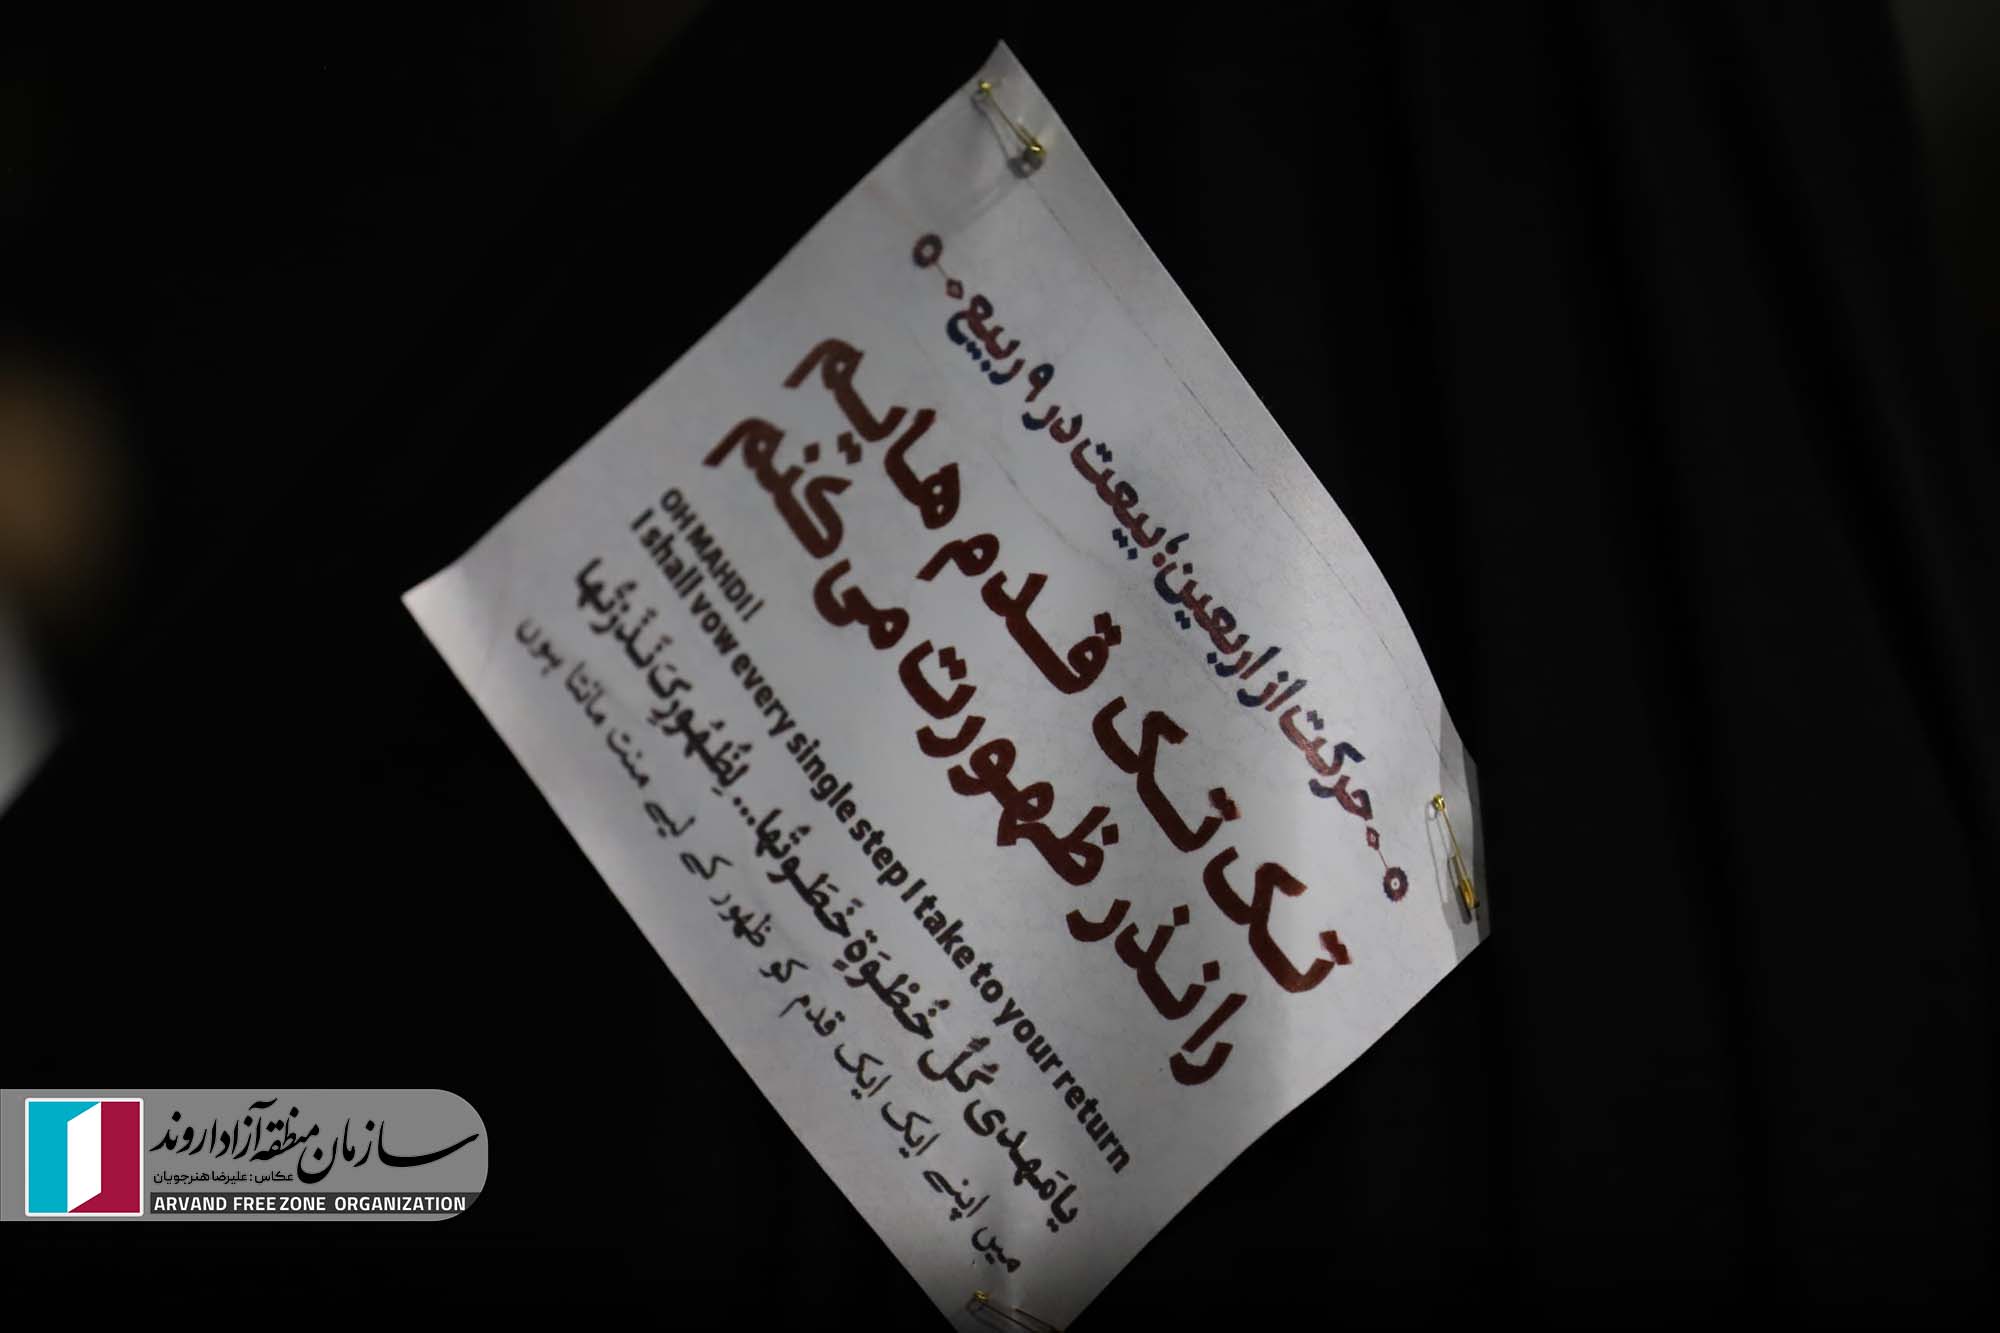 حرکت از اربعین؛ بیعت در ۹ ربیع
تک تک قدم هایم
را نذر ظهورت می کنم
OH MAHDI !
I shall vow every single step I take to your return
یا مَهدی کُلُّ خُطْوَةٍ خَطَوتُها... لِظُهُورِکَ نَذَرْتُها
میں اپنے ایک ایک قدم کو ظہور کے لیے منت مانتا ہوں
سازمان منطقه آزاد اروند
عکاس : علیرضا هنرجویان
ARVAND FREE ZONE ORGANIZATION